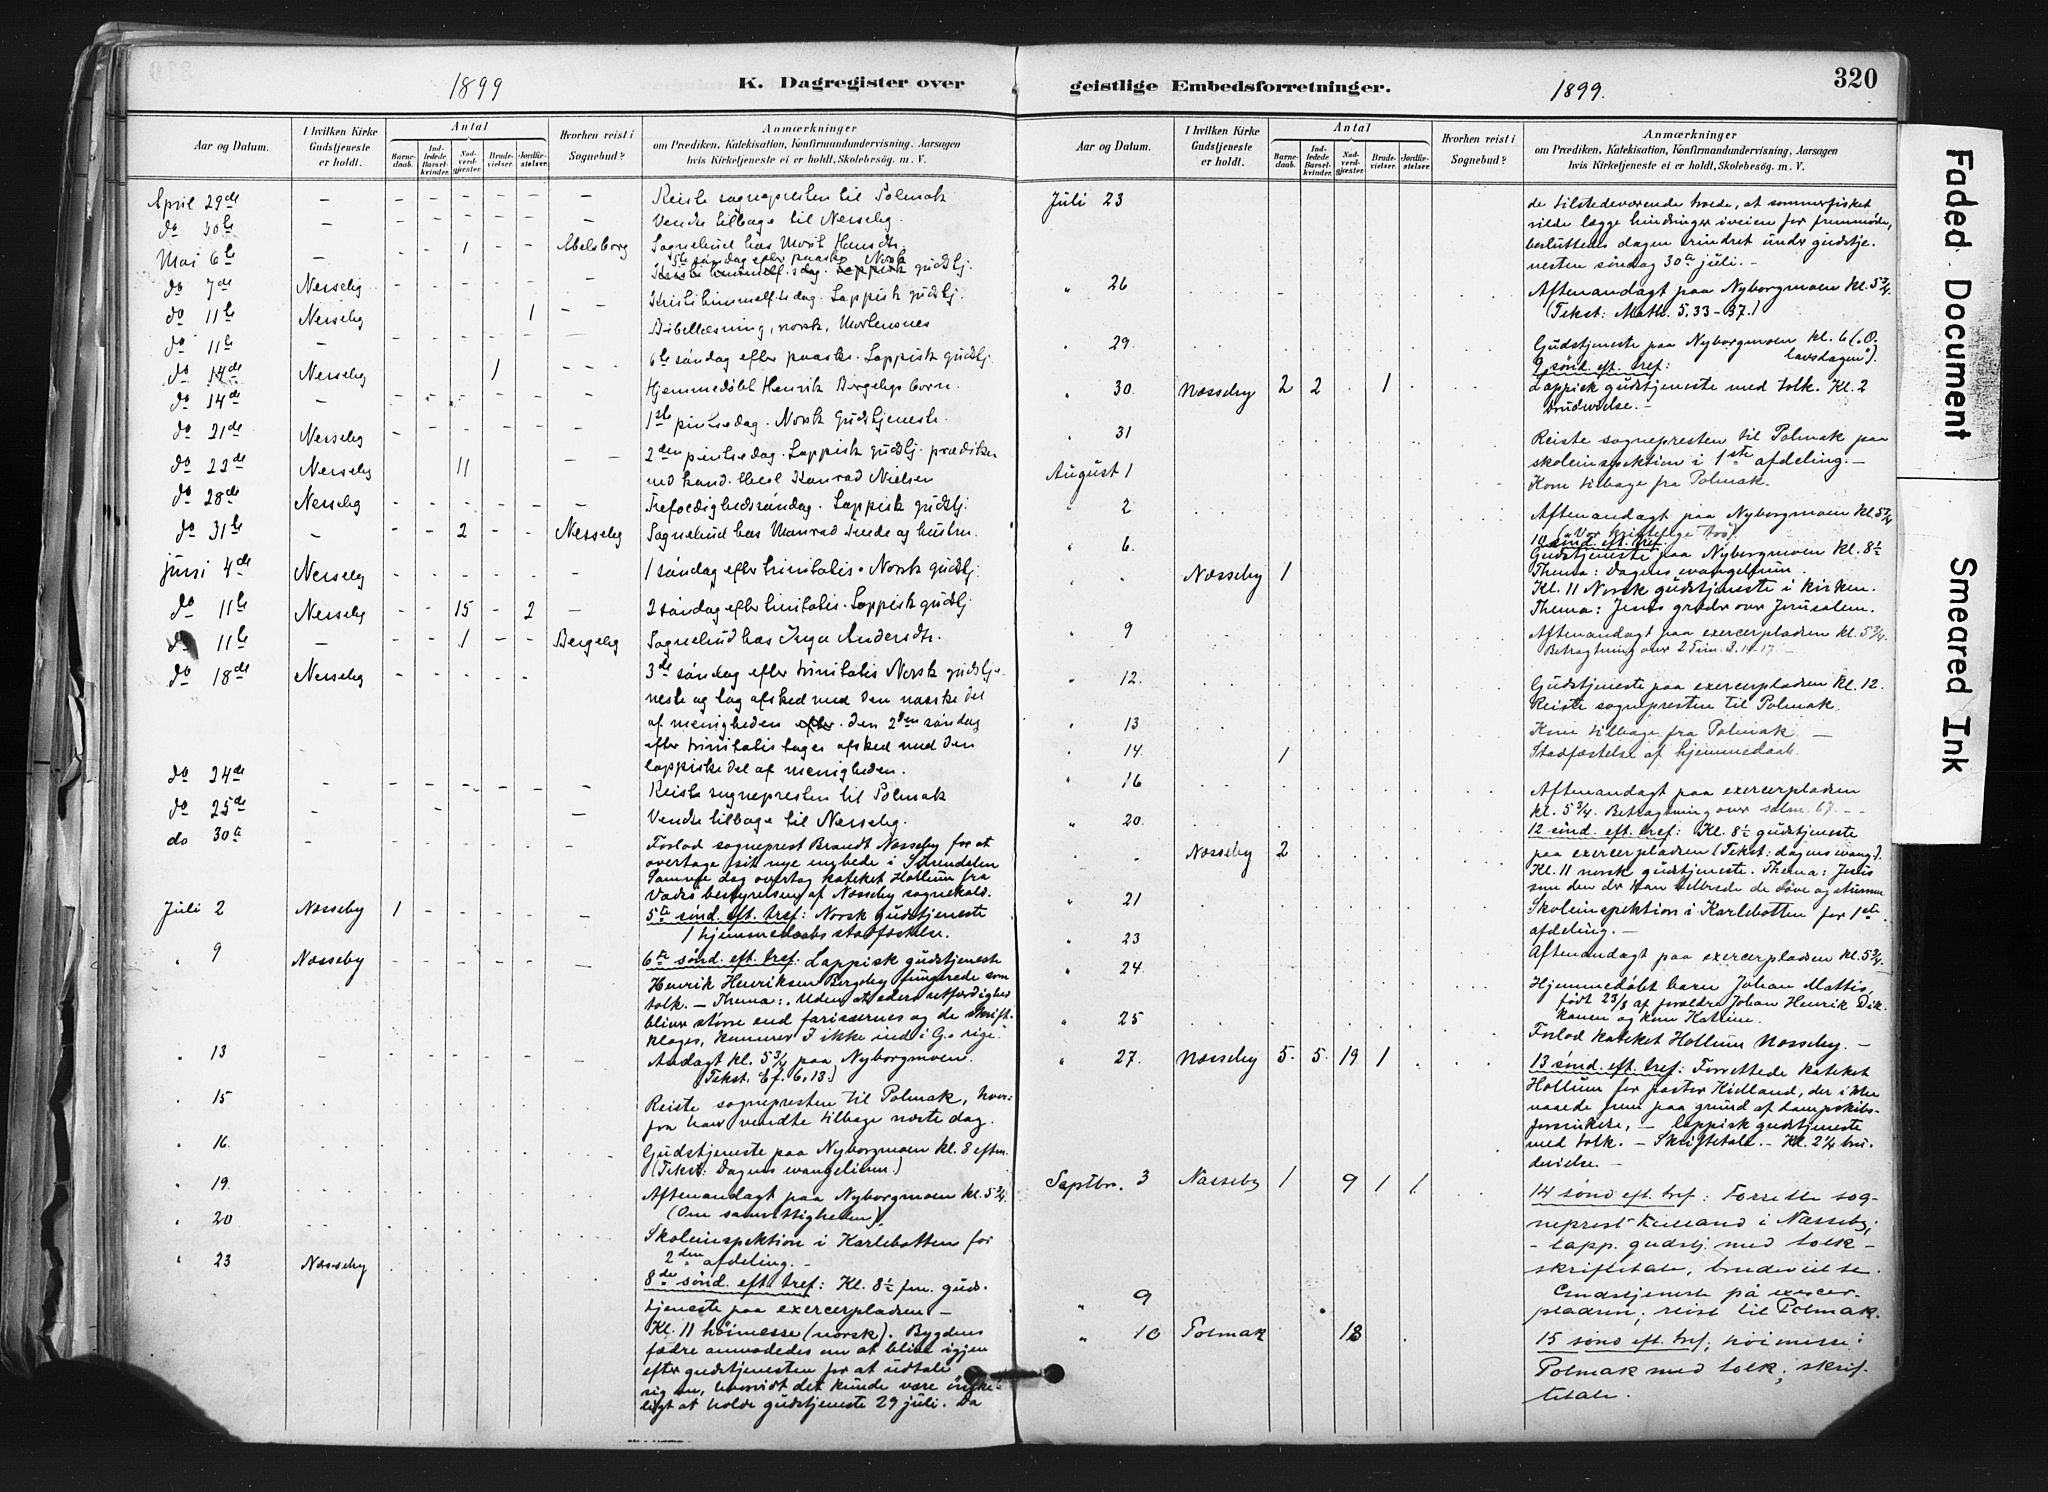 1899
K. Dagregister over
Aar og Datum.
I hvilken Kirke
Gudstjeneste
er holdt.
Antal
Barne-
daab.
Ind-
ledede
Barsel-
kvinder.
Nad-
verd-
gjæster.
Brude-
vielser.
Jordfæ-
stelser.
Hvorhen reist i
Sognebud?
Anmærkninger
om Prædiken, Katekisation, Konfirmandundervisning, Aarsagen
hvis Kirketjeneste ei er holdt, Skolebesøg. m. V.
April 29de - - - - - - - Reiste sognepresten til Polmak
do 30te - Vendte tilbage til Nesseby.
Mai 6te - - - 1 - - Abelsborg Sognebud hos Marit Hansdtr.
5te søndag efter paaske Norsk
do 7de Nesseby gudstj.
do 11te Nesseby 1 - Kristi himmelf.sdag. Lappisk gudstj.
do 11te - Bibellæsning, norsk, Mortensnes
do 14de Nesseby 1 - 6te søndag efter paaske. Lappisk gudstj.
do 14de - Hjemmedøbt Henrik Bergebys barn.
do 21de Nesseby 1ste pinsedag. Norsk Gudstjeneste.
do 22de Nesseby 11 - 2den pintsedag. Lappisk gudstj. prædiken
ved kand. theol Konrad Nielsen
do 28de Nesseby Trefoldighedssøndag. Lappisk gudstj.
do 31te - - - 2 - - Nesseby Sognebud hos Monrad Trede og hustru.
juni 4de Nesseby 1 søndag efter trinitatis. Norsk gudstj.
do 11te Nesseby - - 15 - 2 - 2 søndag efter trinitatis. Lappisk gudstj.
do 11te - - - 1 - - Bergeby Sognebud hos Inga Andersdtr.
do 18de Nesseby - - - - - 3de søndag efter trinitatis Norsk gudstje-
neste og tog afsked med den norske del
af menigheden. Den 2den søndag
efter trinitatis toges afsked med den
lappiske del af menigheden.
do 24de - Reiste sognepresten til Polmak
do 25de - Vendte tilbage til Nesseby.
do 30te - Forlod sogneprest Brandt Næsseby for at
overtage sit nye embede i Surendalen
Samme dag overtog kateket Hollum fra
Vadsø bestyrelsen af Næsseby sognekald.
Juli 2 Næsseby 1 - - - - - 5te sønd. eft. tref: Norsk gudstjeneste
1 hjemmedaabs stadfæstelse.
" 9 Næsseby - 6te sønd. eft. tref. Lappisk gudstjeneste
Henrik Henriksen Bergeby fungerede som
tolk. - Thema: Uden at eders retfærdighed
bliver større end farisæernes og de skrift-
kloges, kommer I ikke ind i G.s rige.
" 13 Andagt kl. 5 3/4 paa Nyborgmoen.
(Tekst. Ef. 6, 13.)
" 15 Reiste sognepresten til Polmak, hvor-
fra han vendte tilbage næste dag.
" 16. Gudstjeneste paa Nyborgmoen kl. 8 eftm.
(Tekst: Dagens evangelium.)
" 19. Aftenandagt paa Nyborgmoen kl. 5 3/4.
(Om samvittigheden).
" 20 Skoleinspektion i Karlebotten for
2den afdeling. -
" 23 Næsseby 8de sønd. eft. tref: Kl. 8½ fm. guds-
tjeneste paa exercerpladsen -
Kl. 11 høimesse (norsk). Bygdens
fædre anmodedes om at blive igjen
efter gudstjenesten for at udtale
sig om, hvorvidt det kunde være ønske-
ligt at holde gudstjeneste 29 juli. Da
geistlige Embedsforretninger.
1899.
320
Aar og Datum.
I hvilken Kirke
Gudstjeneste
er holdt.
Antal
Barne-
daab.
Ind-
ledede
Barsel-
kvinder.
Nad-
verd-
gjæster.
Brude-
vielser.
Jordfæ-
stelser.
Hvorhen reist i
Sognebud?
Anmærkninger
om Prædiken, Katekisation, Konfirmandundervisning, Aarsagen
hvis Kirketjeneste ei er holdt, Skolebesög. m. V.
Juli 23 de tilstedeværende troede, at sommerfisket
vilde lægge hindringer iveien for fremmøde,
besluttedes dagen erindret under gudstje-
nesten søndag 30te juli. -
" 26 Aftenandagt paa Nyborgmoen kl. 5 3/4.
(Tekst: Math. 5, 33-37.)
" 29. Gudstjeneste paa Nyborgmoen kl. 6 ("O-
lavsdagen").
9 sønd. eft. tref:
" 30. Næsseby 2 2 . 1 Lappisk gudstjeneste med tolk. Kl. 2
brudevielse. -
" 31 Reiste sognepresten til Polmak paa
skoleinspektion i 1ste afdeling. -
August 1 Kom tilbage fra Polmak.
" 2 Aftenandagt paa Nyborgmoen kl. 5 3/4
(Vor kristelige tro).
10 sønd. eft. tref.
" 6. Gudstjeneste paa Nyborgmoen kl. 8½
Thema: Dagens evangelium.
" " Næsseby 1 Kl. 11 Norsk gudstjeneste i kirken.
Thema: Jesus græder over Jerusalem.
" 9 Aftenandagt paa exercerpladsen kl. 5 3/4.
Betragtning over 2 Tim. 3, 14-17. -
" 12. Gudstjeneste paa exercerpladsen kl. 12.
Reiste sognepresten til Polmak.
" 13 Kom tilbage fra Polmak -
" 14. 1 Stadfæstelse af hjemmedaab.
" 16 Aftenandagt paa exercerpladsen
kl. 5 3/4. Betragtning over salm. 67. - -
" 20. 12 sønd. eft. tref: Kl. 8½ gudstjeneste
paa exercerpladsen (Tekst: dagens evang.).
" " Næsseby 2 Kl. 11 norsk gudstjeneste. Thema: Jesus
som den der kan helbrede de døve og stumme
" 21 Skoleinspektion i Karlebotten for 1ste
afdeling. -
" 23 Aftenandagt paa exercerpladsen kl. 5 3/4.
" 24. Hjemmedøbt barn Johan Mattis,
født 23/8 af forældre Johan Henrik Dik-
kanen og kone Katrine.
" 25 Forlod kateket Hollum Næsseby. -
" 27. Næsseby 5. 5. 19 1 13 sønd. eft. tref: Forrettede kateket
Hollum for pastor Kielland, der ikke
naaede frem paa grund af dampskibs-
forsinkelse, - lappisk gudstjeneste
med tolk. - Skriftetale. - Kl. 2¼ bru-
devielse. -
Septbr. 3 Næsseby 1 9 1 1 14 sønd eft. tref: Forrettede sog-
neprest Kielland i Næsseby;
- lapp. gudstj. med tolk -
skriftetale, brudevielse.
" 9 Gudstjeneste på exercer-
pladsen; reist til Polmak.
" 10 Polmak 18 15 sønd eft. tref; høimesse i
Polmak med tolk; skrif-
tetale.
Faded Document
Smeared Ink